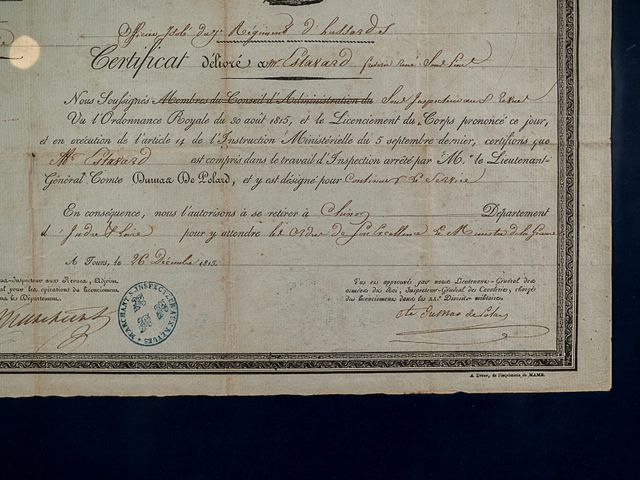 Officier Isolé du 7e Régiment d'hussards
Certificat délivré a Mr Estavard
Nous Soussignés Membres du Conseil d'Administration du Sous Inspecteur aux Revues
Vu l'Ordonnance Royale du 30 août 1815, et le Licenciement du Corps prononcé ce jour,
et en exécution de l'article 14 de l'Instruction Ministérielle du 5 septembre dernier, certifions que
Mr Estavard est compris dans le travail d'Inspection arrêté par M.r le Lieutenant-
Général Comte Dumas De Polard, et y est désigné pour Continuer le Service
En conséquence, nous l'autorisons à se retirer à Chinon Département
d'Indre & Loire pour y attendre les Ordres de Son Excellence le Ministre de la Guerre
A Tours, le 26 Décembre 1815.
us-Inspecteur aux Revues, Adjoint
al pour les opérations du licenciement
ns le Département.
Marchant
MARCHANT S. INSPECTEUR AUX REVUES
Vu et approuvé par nous Lieutenant-Général des
armées du Roi, Inspecteur-Général des Cavaleries, chargé
des licenciemens dans la XXIIe Division militaire,
Cte Dumas de Polard
A Tours, de l'Imprimerie de MAME.